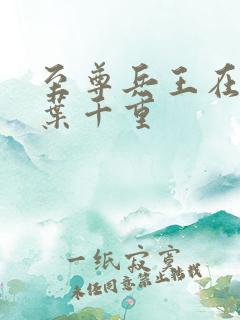 至尊兵王在
葉千重
一纸寂寞
未经同意禁止转载